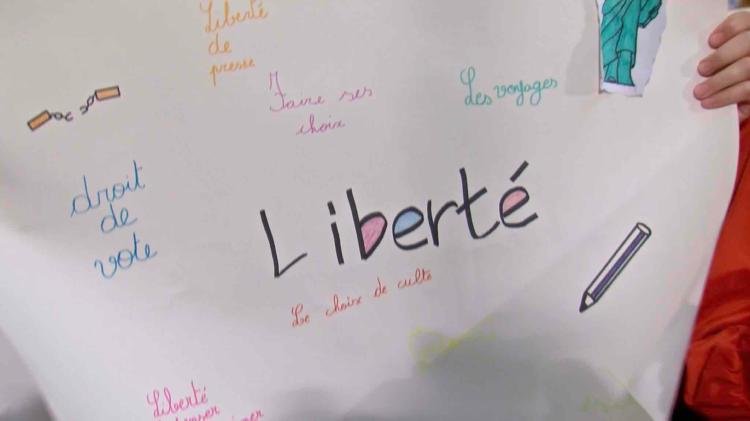 Liberté
de
presse
Faire ses
choix
Les voyages
droit
de
vote
Liberté
Le choix de culte
Liberté